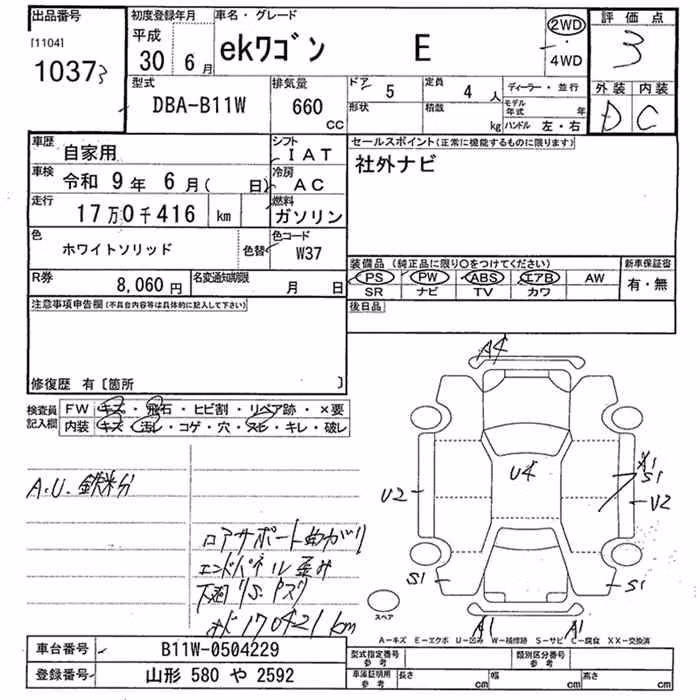 出品番号
[1104]
1037
初度登録年月
平成
30 年 6 月
車名・グレード
ekワゴン E
2WD
4WD
評価点
3
外装 内装
D C
型式
DBA-B11W
排気量
660
CC
ドア 5
定員 4 人
形状
積載 kg
ディーラー・並行
モデル年式 年
ハンドル 左・右
車歴
自家用
シフト
IAT
車検 令和 9 年 6 月( 日)
冷房
AC
走行
17万0千416 km
燃料
ガソリン
色
ホワイトソリッド
色替
色コード
W37
R券
8,060 円
名変通知期限
月 日
セールスポイント(正常に機能するものに限ります)
社外ナビ
装備品(純正品に限り〇をつけてください)
PS PW ABS エアB AW
SR ナビ TV カワ
新車保証書
有・無
後日品
注意事項申告欄(不具合内容等は具体的に記入して下さい)
修復歴 有〔箇所 〕
検査員
記入欄
FW キズ・飛石・ヒビ割・リペア跡・×要
内装 キズ・汚レ・コゲ・穴・スレ・キレ・破レ
A.U. 鉄粉
ロアサポート曲がり
エンドパネル歪み
下廻り
170421km
A4
U4
U2
X1
S1
U2
S1
S1
A1
A1
スペア
A−キズ E−エクボ U−凹み W−補修跡 S−サビ C−腐食 XX−交換済
車台番号
B11W-0504229
登録番号
山形 580 や 2592
型式指定番号
参考
類別区分番号
参考
車庫証明用
参考
長さ cm
幅 cm
高さ cm